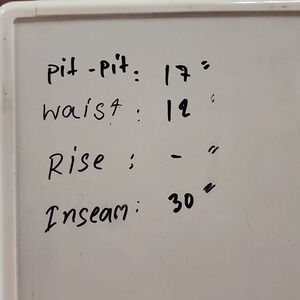 pit-pit: 17"
waist: 12"
Rise: - "
Inseam: 30"